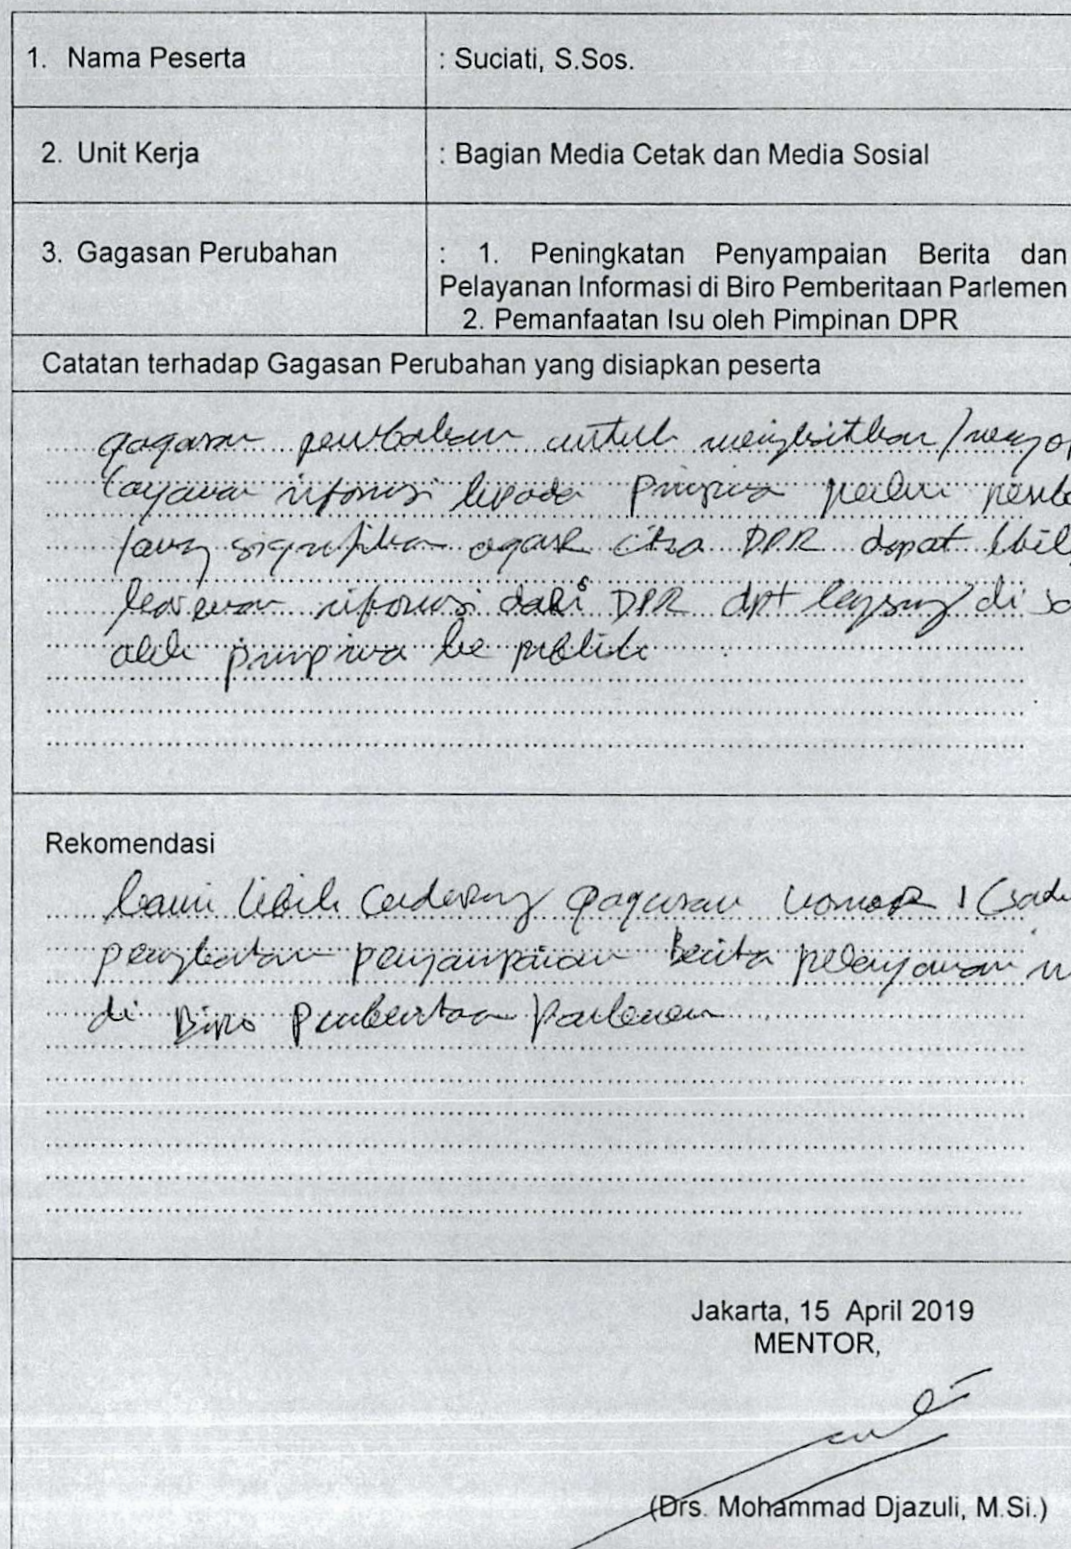 1. Nama Peserta : Suciati, S.Sos.
2. Unit Kerja : Bagian Media Cetak dan Media Sosial
3. Gagasan Perubahan : 1. Peningkatan Penyampaian Berita dan
Pelayanan Informasi di Biro Pemberitaan Parlemen
2. Pemanfaatan Isu oleh Pimpinan DPR
Catatan terhadap Gagasan Perubahan yang disiapkan peserta
gagasan perubahan untuk
layanan informasi kepada Pimpinan perlu
yang signifikan agar citra DPR dapat
karena informasi dari DPR dpt langsung di
oleh pimpinan ke publik
Rekomendasi
kami lebih cenderung gagasan nomor 1
peningkatan penyampaian berita pelayanan
di Biro Pemberitaan Parlemen
Jakarta, 15 April 2019
MENTOR,
(Drs. Mohammad Djazuli, M.Si.)